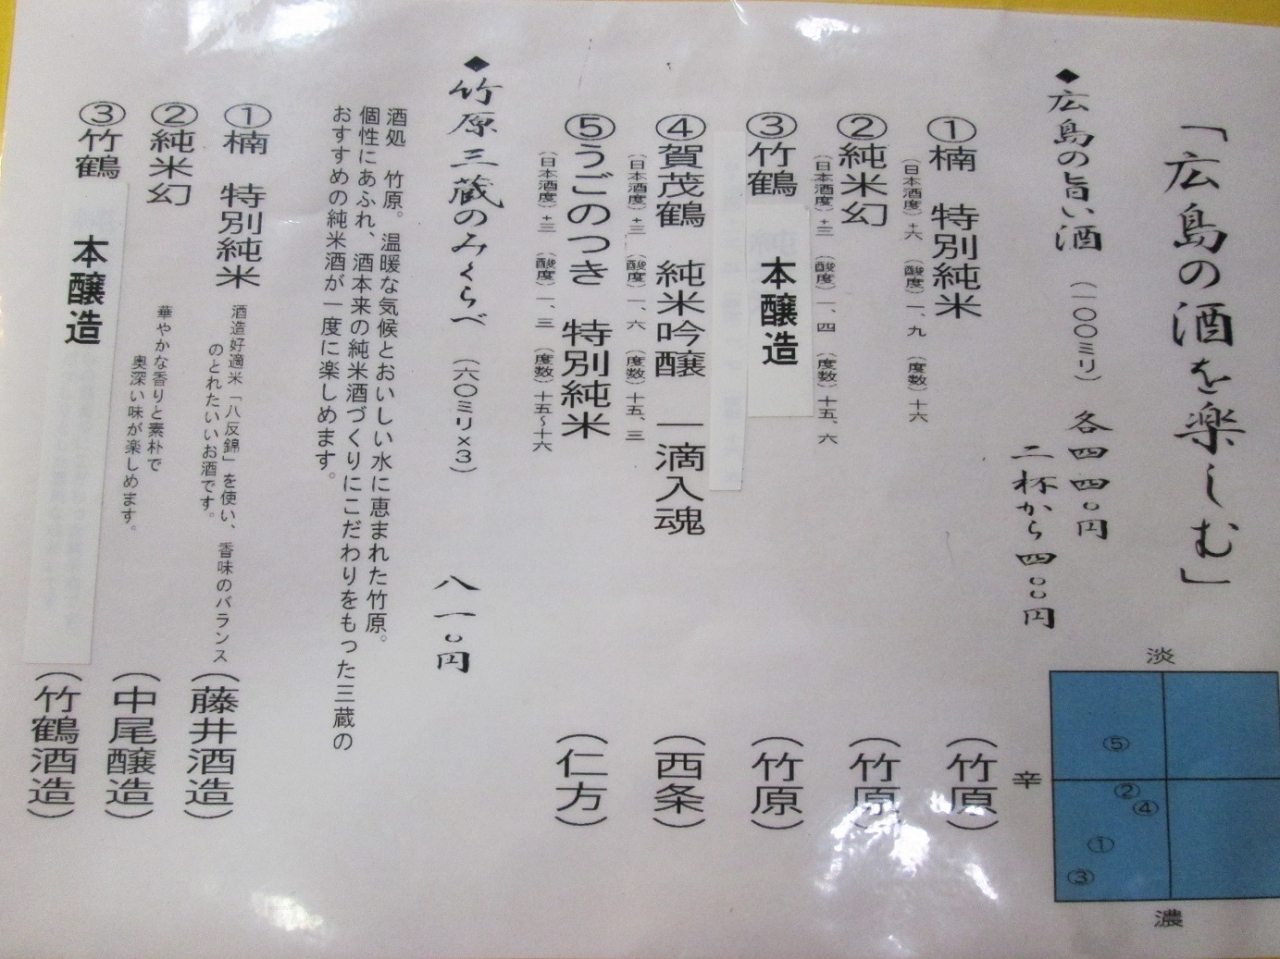 「広島の酒を楽しむ」
◆広島の旨い酒 (一〇〇ミリ) 各四四〇円
二杯から四〇〇円
①楠 特別純米 (竹原)
(日本酒度)+六 (酸度)一、九 (度数)十六
②純米幻 (竹原)
(日本酒度)+三 (酸度)一、四 (度数)十五、六
③竹鶴 本醸造 (竹原)
④賀茂鶴 純米吟醸 一滴入魂 (西条)
(日本酒度)+三 (酸度)一、六 (度数)十五、三
⑤うごのつき 特別純米 (仁方)
(日本酒度)+三 (酸度)一、三 (度数)十五~十六
淡
辛
濃
⑤
②
④
①
③
◆竹原三蔵のみくらべ (六〇ミリ×3) 八一〇円
酒処 竹原。温暖な気候とおいしい水に恵まれた竹原。
個性にあふれ、酒本来の純米酒づくりにこだわりをもった三蔵の
おすすめの純米酒が一度に楽しめます。
①楠 特別純米 (藤井酒造)
酒造好適米「八反錦」を使い、香味のバランス
のとれたいいお酒です。
②純米幻 (中尾醸造)
華やかな香りと素朴で
奥深い味が楽しめます。
③竹鶴 本醸造 (竹鶴酒造)